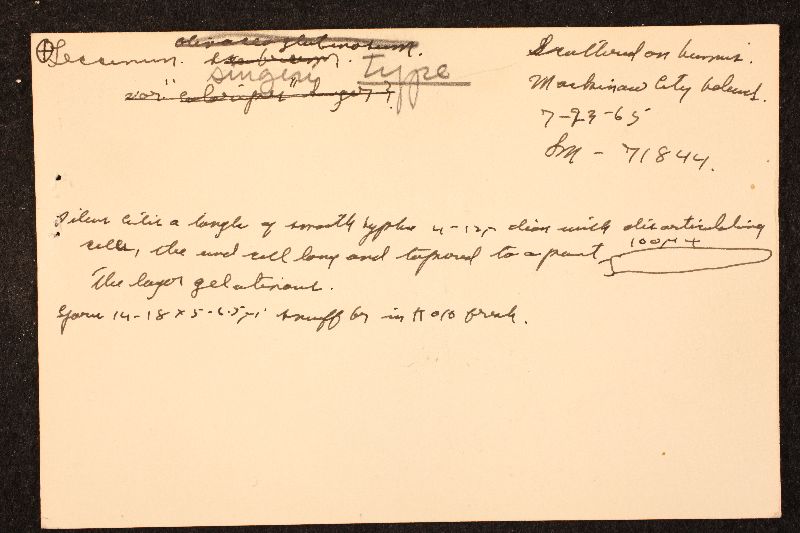 ⊕ Leccinum. olivaceoglutinosum.
scabrum.
singeri type
var. "coloripes" Singer ?
Scattered on humus.
Mackinaw City holend.
7-23-65
SM - 71844.
Pileus cutis a tangle of smooth hyphae 4-12μ diam with disarticulating
cells, the end cell long and tapered to a point 100μ+
The layer gelatinous.
Spore 14-18 x 5-6.5μ; snuff br in KOH fresh.